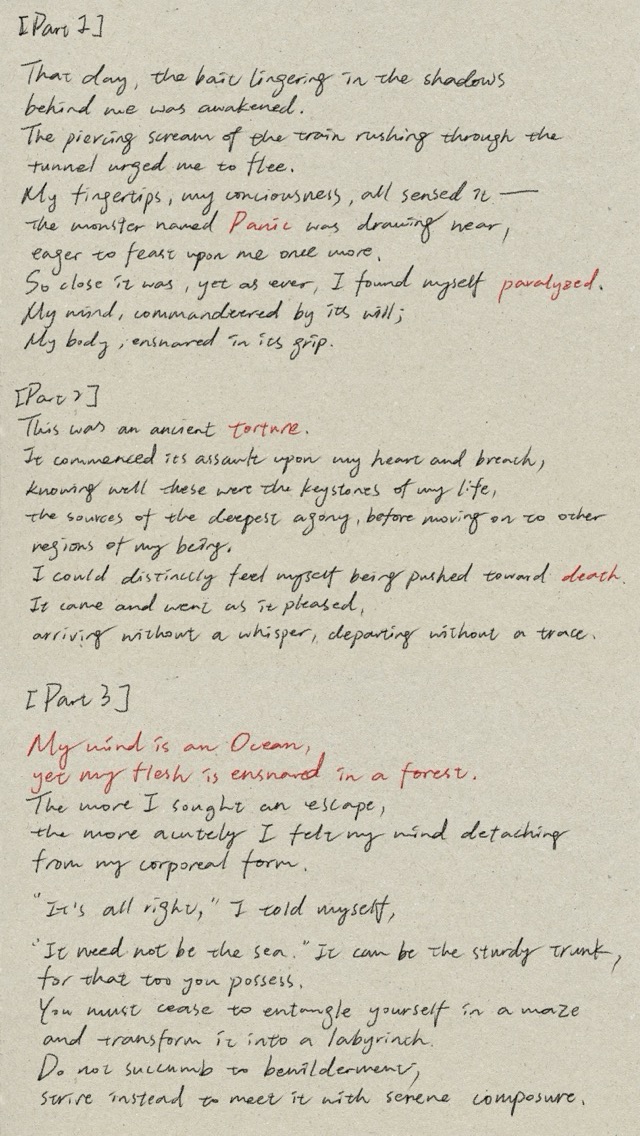 [Part 1]
That day, the bait lingering in the shadows
behind me was awakened.
The piercing scream of the train rushing through the
tunnel urged me to flee.
My fingertips, my conciousness, all sensed it —
the monster named Panic was drawing near,
eager to feast upon me once more.
So close it was, yet as ever, I found myself paralyzed.
My mind, commandeered by its will;
My body, ensnared in its grip.
[Part 2]
This was an ancient torture.
It commenced its assault upon my heart and breath,
knowing well these were the keystones of my life,
the sources of the deepest agony, before moving on to other
regions of my being.
I could distinctly feel myself being pushed toward death.
It came and went as it pleased,
arriving without a whisper, departing without a trace.
[Part 3]
My mind is an Ocean,
yet my flesh is ensnared in a forest.
The more I sought an escape,
the more acutely I felt my mind detaching
from my corporeal form.
"It's all right," I told myself,
"It need not be the sea." It can be the sturdy trunk,
for that too you possess.
You must cease to entangle yourself in a maze
and transform it into a labyrinth.
Do not succumb to bewilderment,
strive instead to meet it with serene composure.